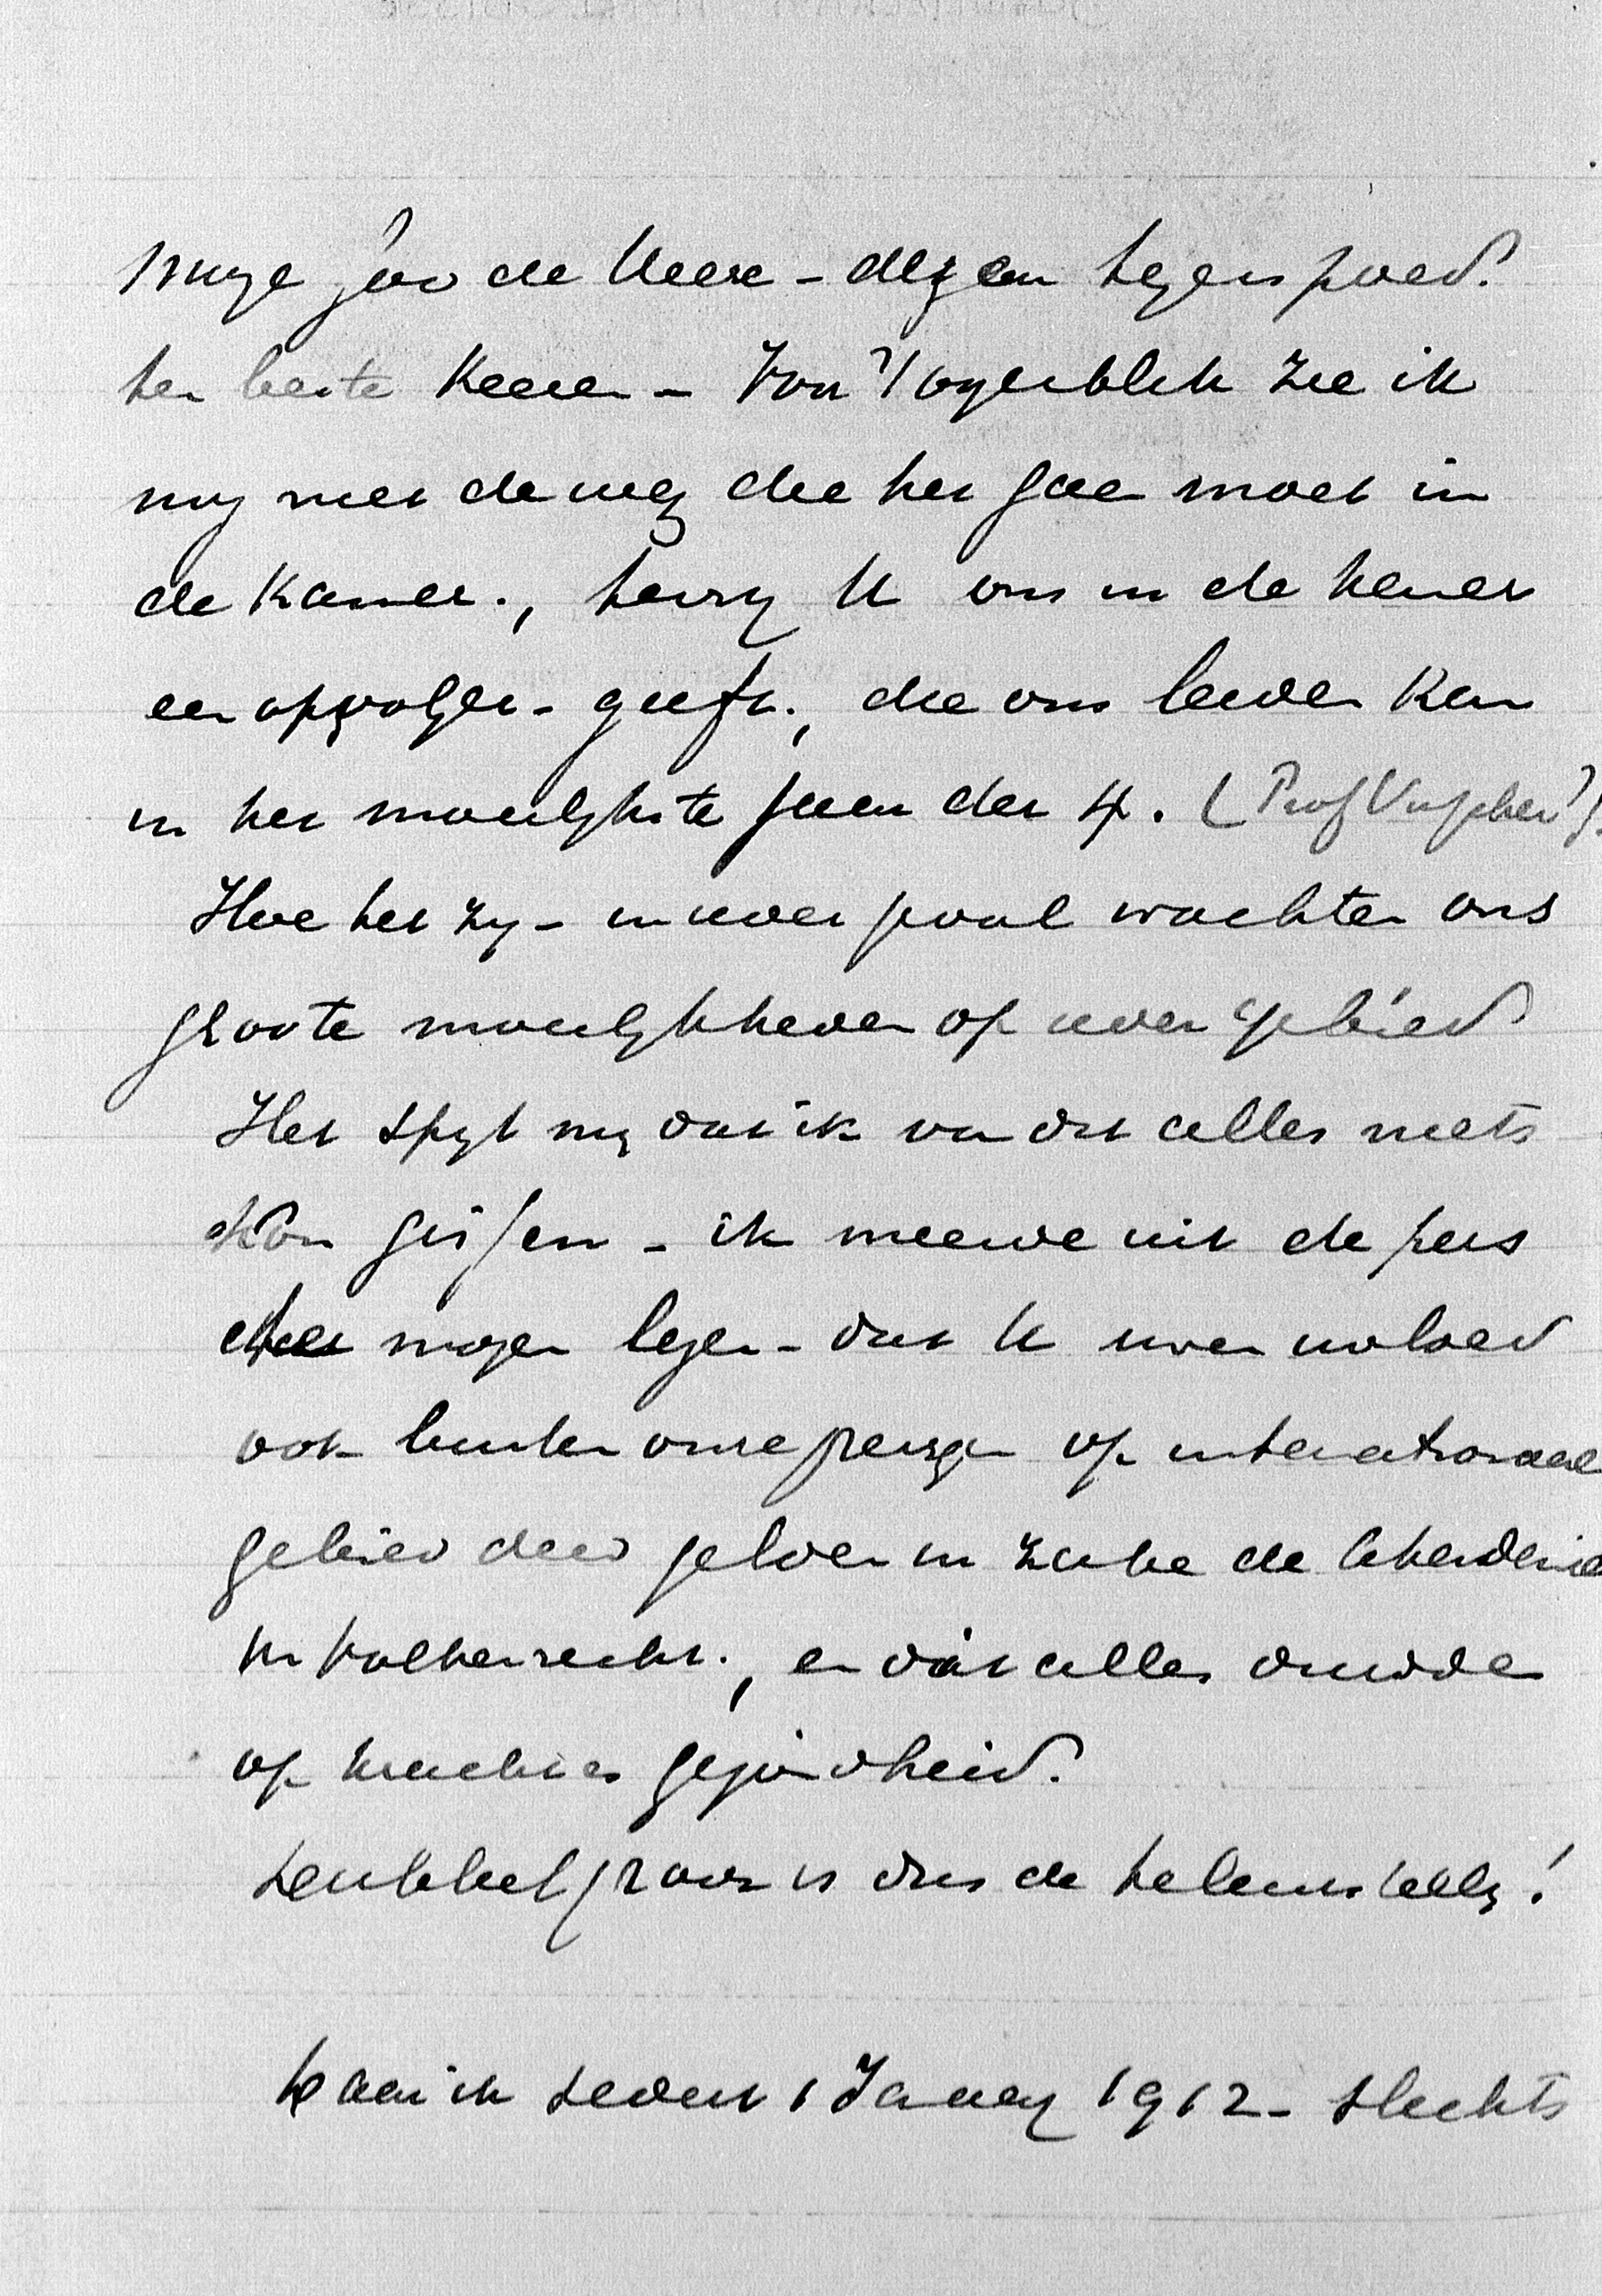 moge God de Heere – dezen tegenspoed
ten beste keeren – Voor 't oogenblik zie ik
nog niet de weg die het gaan moet in
de Kamer., tenzij U ons in de kamer
een opvolger – geeft., die ons leiden kan
in het moeilijkste jaar der 4. (Prof Visscher?).
Hoe het zij – in ieder geval wachten ons
groote moeilijkheden op ieder gebied
Het spijt mij dat ik van dit alles niets
kon gissen – ik meende uit de pers
mogen lezen – dat U uwen invloed
ook buiten onze grenzen op internationaal
gebied deed gelden in zake de
in Volkenrecht., en dát alles duidde
op kracht en gezondheid.
Dubbel groot is dus de teleurstelling!
Daar ik sedert 1 January 1912 – slechts